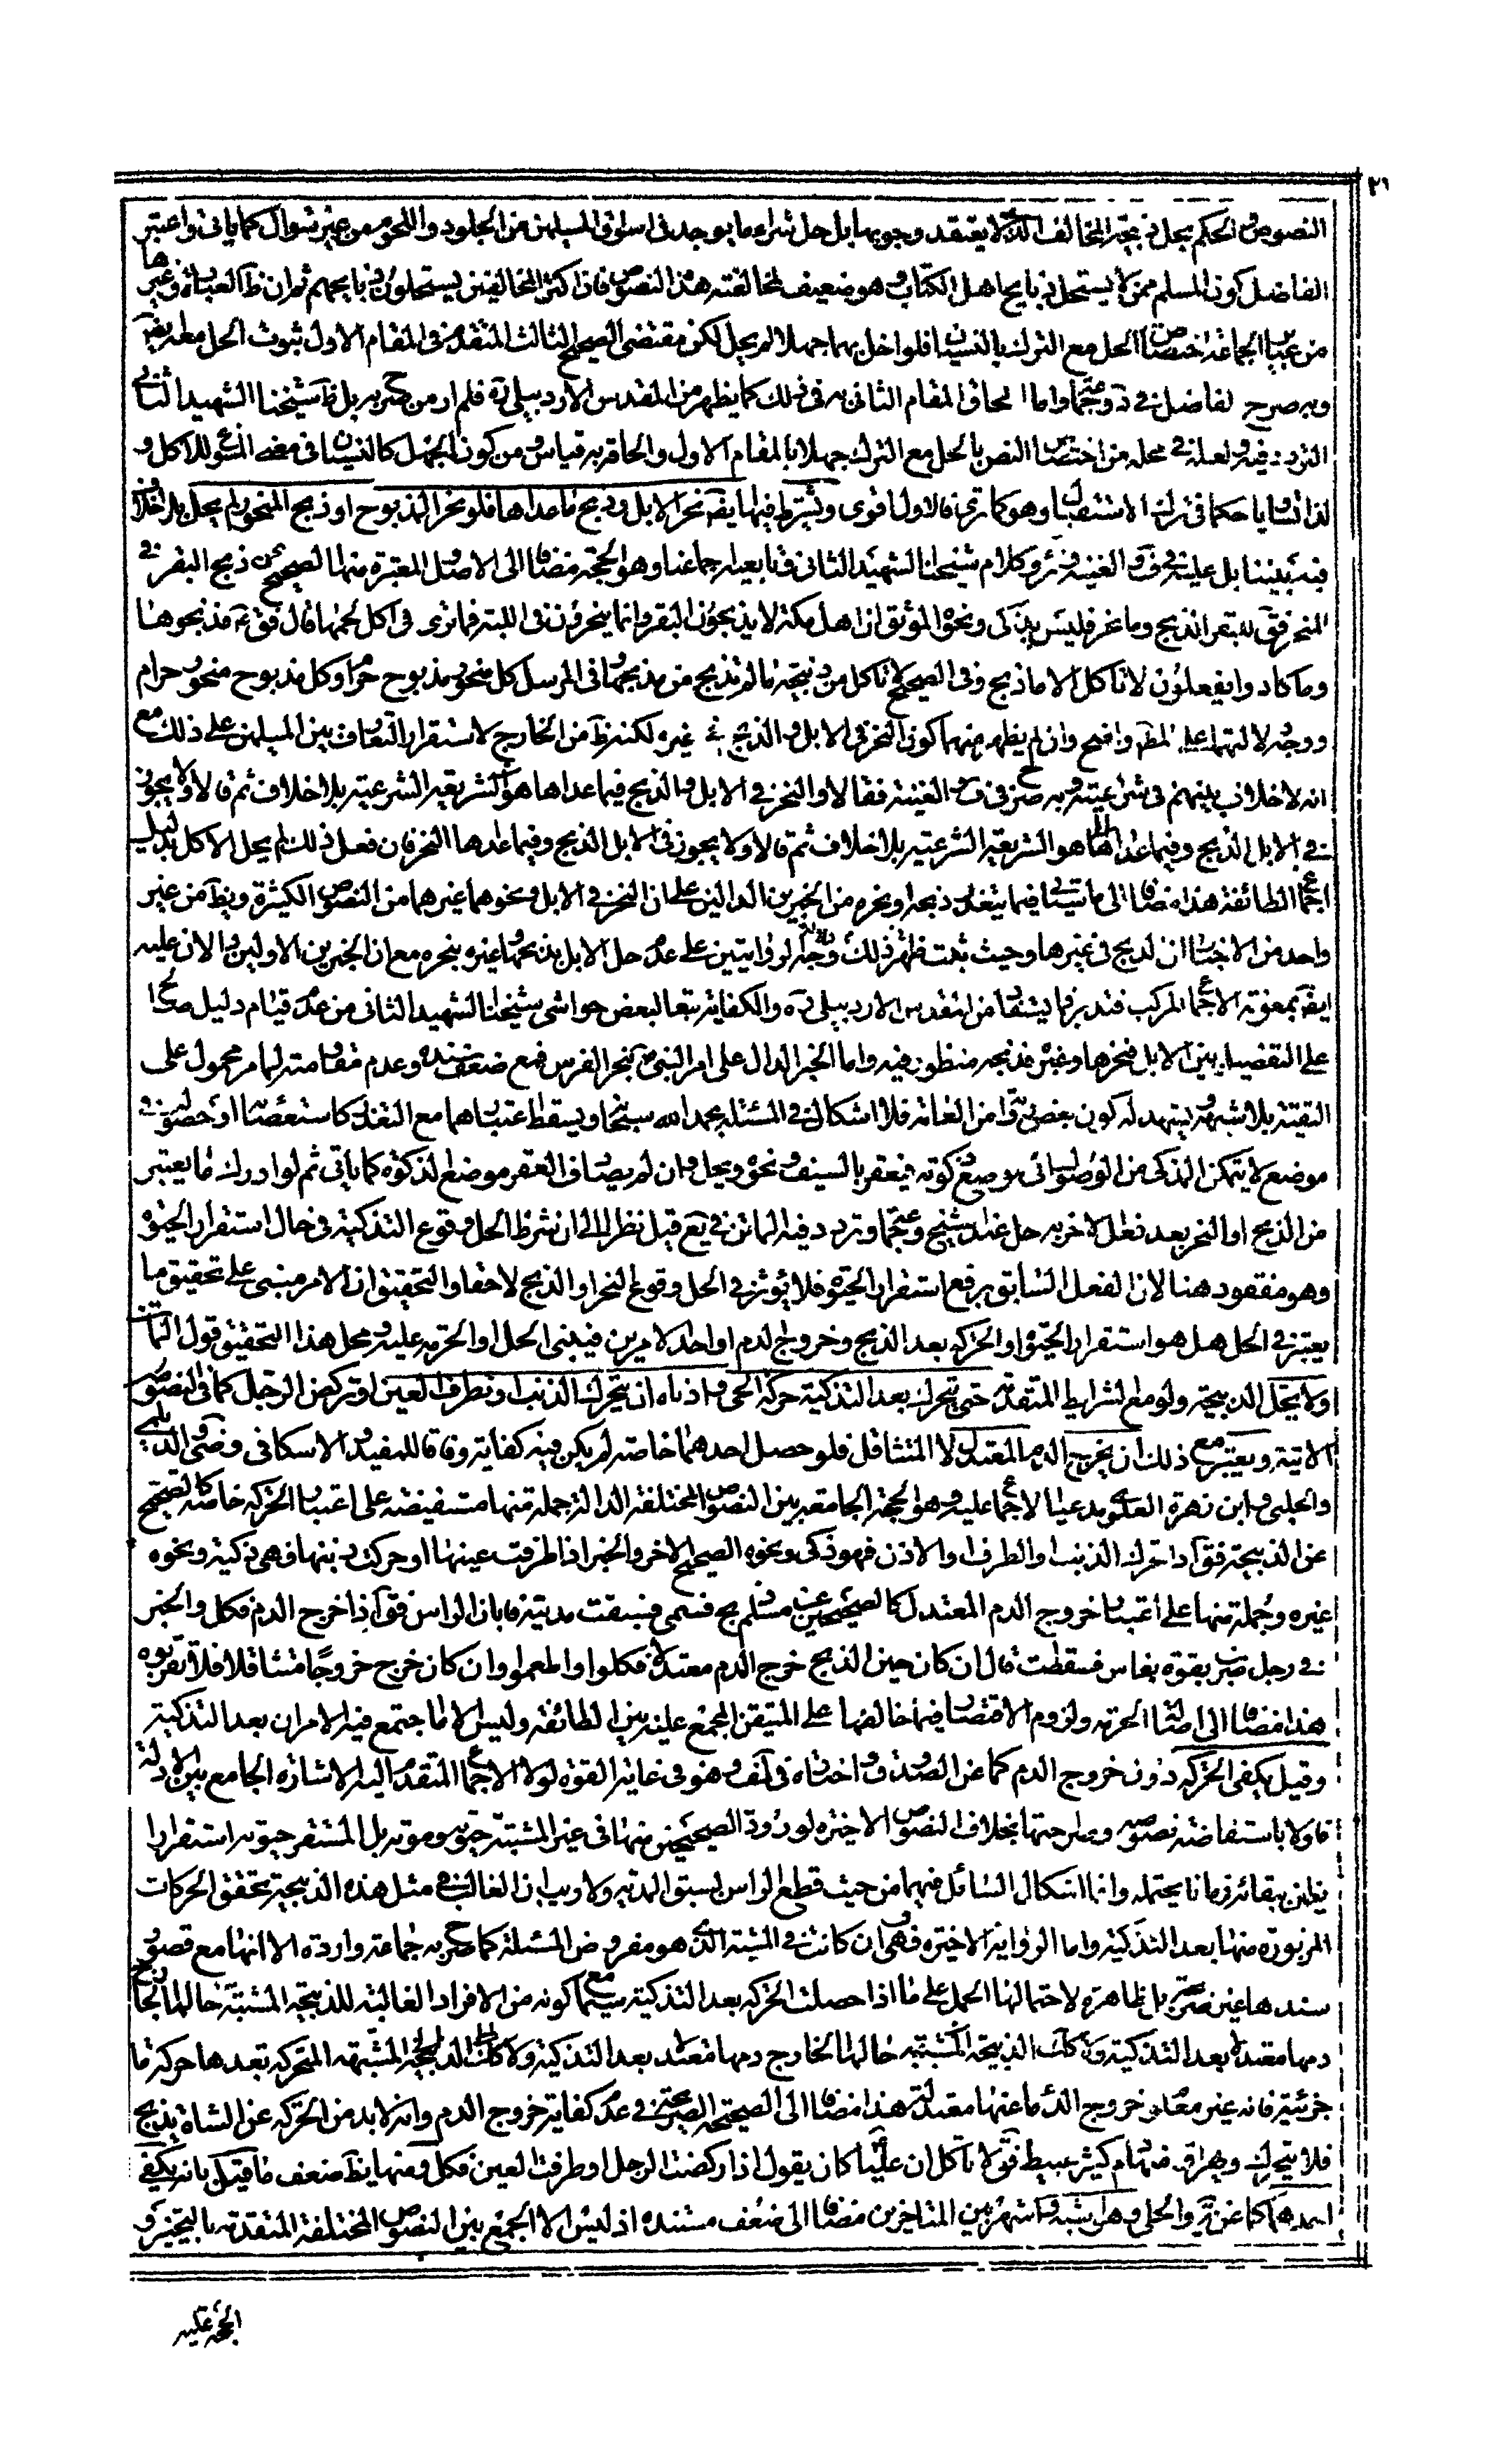 ٢١
النصوص الحكم بحل ذبيحة المخالف الذي لا يعتقد وجوبها بل حل شراء ما يوجد في اسواق المسلمين من الجلود واللحوم من غير سؤال كما ياتي واعتبر
الفاضل كون المسلم ممن لا يستحل ذبايح اهل الكتاب وهو ضعيف لمخالفته هذه النصوص فان اكثر المخالفين يستحلون ذبايحهم ثم ان ظ العبارة وغيرها
من عبار الجماعة اختصاص الحل مع الترك بالنسيان فلو اخل بها جهلا لم يحل لكن مقتضى الصحيح الثالث المتقدم في المقام الاول ثبوت الحل مط
وبه صرح لفاضل في واما الحاق المقام الثاني به في ذلك كما يظهر من المقدس الاردبيلي ره فلم ار من صرح به بل ظ شيخنا الشهيد الثاني
التردد فيه ولعله في محله من اختصاص النص بالحل مع الترك جهلا بالمقام الاول والحاقه به قياس ومن كون الجهل كالنسيان في المعنى المسوغ للاكل و
لذا تساويا حكما في ترك الاستقبال وهو كما ترى فالاول اقوى ويشترط فيها ايضا نحر الابل وذبح ما عداها فلو نحر المذبوح او ذبح المنحور لم يحل بلا خلاف
فيه بيننا بل عليه في ف والغنية وئر وكلام شيخنا الشهيد الثاني وتابعيه اجماعنا وهو الحجة مضافا الى الاصول المعتبرة منها الصحيح عن ذبح البقر في
المنحر فق للبقر الذبح وما نحر فليس بذكي ونحوه الموثق ان اهل مكة لا يذبحون البقر وانما ينحرون في اللبة فما ترى في اكل لحمها قال فق ع فذبحوها
وما كادوا يفعلون لا تاكل الا ما ذبح وفي الصحيح لا تاكل من ذبيحة ما لم تذبح من مذبحها وفي المرسل كل منحور مذبوح حرام وكل مذبوح منحور حرام
ووجه دلالتها على المط واضح وان لم يظهر منها كون النحر في الابل والذبح في غيره لكنه ظ من الخارج لاستقرار التعارف بين المسلمين على ذلك مع
انه لا خلاف بينهم في شرعيته وبه صرح في ف والغنية فقالا والنحر في الابل والذبح فيما عداها هو الشريعة الشرعية بلا خلاف ثم قالا ولا يجوز
في الابل الذبح وفيما عداها هو الشريعة الشرعية بلا خلاف ثم قالا ولا يجوز في الابل الذبح وفيما عداها النحر فان فعل ذلك لم يحل الاكل بدليل
اجماع الطائفة هذا مضافا الى ما سياتي فيما يتعذر ذبحه او نحره من الخبرين الدالين على ان النحر في الابل ونحوهما غيرهما من النصوص الكثيرة ويظ من غير
واحد من الاخبار ان الذبح في غيرها وحيث ثبت ظهر ذلك وجه دلالة الروايتين على عدم حل الابل بذبحها وغيره بنحره مع ان الخبرين الاولين دالان عليه
ايضا بمعونة الاجماع المركب فتدبر فما يستفاد من المقدس الاردبيلي ره والكفاية تبعا لبعض حواشي شيخنا الشهيد الثاني من عدم قيام دليل صالح
على التفصيل بين الابل فنحرها وغيره فذبحه منظور فيه واما الخبر الدال على امر النبي ص بنحر الفرس فمع ضعف سنده وعدم مقاومته لما مر محمول على
التقية بلا شبهة ليشهد له كون بعض رواته من العامة فلا اشكال في المسئلة بحمد الله سبحانه ويسقط اعتبارهما مع التعذر كاستعصائه او حصوله في
موضع لا يتمكن المذكي من الوصول الى موضع ذكوته فيعقر بالسيف ونحوه ويحل وان لم يصادف العقر موضع الذكوة كما ياتي ثم لو ادرك ما يعتبر
من الذبح او النحر بعد فعل الاخر به حل عند شيخ وجماعة وتردد فيه الماتن في يع قيل نظرا الى ان شرط الحل وقوع التذكية في حال استقرار الحيوة
وهو مفقود هنا لان الفعل السابق يرفع استقرار الحيوة فلا يؤثر في الحل وقوع النحر او الذبح لاحقا والتحقيق ان الامر مبني على تحقيق ما
يعتبر في الحل هل هو استقرار الحيوة او الحركة بعد الذبح وخروج الدم او احد الامرين فيبنى الحل او الحرمة عليه ومحل هذا التحقيق قول الماتن
ولا يحل الذبيحة ولو مع الشرايط المتقدمة حتى يتحرك بعد التذكية حركة الحي وادناه ان يتحرك الذنب او تطرف العين او تركض الرجل كما في النصوص
الاتية ويعتبر مع ذلك ان يخرج الدم المعتدل لا المتثاقل فلو حصل احدهما خاصة لم يكن فيه كفاية وفاقا للمفيد والاسكافي والقاضي والديلمي
والحلبي وابن زهرة العلوي مدعيا الاجماع عليه وهو الحجة الجامعة بين النصوص المختلفة الدالة جملة منها مستفيضة على اعتبار الحركة خاصة كالصحيح
عن الذبيحة فق اذا تحرك الذنب والطرف والاذن فهو ذكي ونحوه الصحيح الاخر والخبر اذا طرفت عينها او حركت ذنبها فهي ذكية ونحوه
غيره وجملة منها على اعتبار خروج الدم المعتدل كالصحيحين عن مسلم ذبح فسمى فسبقت مديته فابان الراس فق اذا خرج الدم فكل والخبر
في رجل ضرب بقرة بفاس فسقطت قال ان كان حين الذبح خرج الدم معتدلا فكلوا واطعموا وان كان خرج خروجا متثاقلا فلا تقربوه
هذا مضافا الى اصالة الحرمة ولزوم الاقتصار فيما خالفها على المتيقن المجمع عليه بين الطائفة وليس الا ما اجتمع فيه الامران بعد التذكية
وقيل يكفي الحركة دون خروج الدم كما عن الصدوق واختاره في لف وهو في غاية القوة لولا الاجماع المتقدم اليه الاشارة الجامع بين الادلة
قالوا باستفاضة نصوصه وصراحتها بخلاف النصوص الاخيرة لورود الصحيحين منها في غير المشتبه حيوته وموته بل المستقر حيوته استقرارا
يظن ببقائه زمانا يحتمله وانما اشكال السائل فيهما من حيث قطع الراس لسبق المدية ولا ريب ان الغالب في مثل هذه الذبيحة تحقق الحركات
المزبورة منها بعد التذكية واما الرواية الاخيرة فهي وان كانت في المشتبه الذي هو مفروض المسئلة كما صرح به جماعة واردة الا انها مع قصور
سندها غير صريحة بل ظاهرة لاحتمالها الحمل على ما اذا حصلت الحركة بعد التذكية سيما مع كونه من الافراد الغالبة للذبيحة المشتبه حالها الخارج
دمها معتدلا بعد التذكية ولا كذلك الذبيحة المشتبهة المتحركة بعدها حركة ما
جزئية فانه غير معلوم خروج الدماء عنها معتدلة هذا مضافا الى الصحيحة الصريحة في عدم كفاية خروج الدم وانه لا بد من الحركة عن الشاة يذبح
فلا يتحرك ويهراق منها دم كثير عبيط فق لا تاكل ان عليا كان يقول اذا ركضت الرجل او طرفت العين فكل ومنها يظ ضعف ما قيل بانه يكفي
احدهما كما عن ية والحلي وهو اشبه واشهر بين المتاخرين مضافا الى ضعف مستنده اذ ليس الا الجمع بين النصوص المختلفة المتقدمة بالتخيير و
الجمع عليه